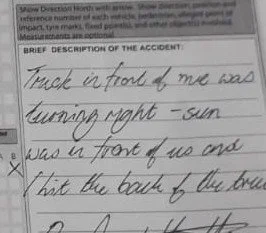 Show Direction North with arrow. Show direction, position and
reference number of each vehicle, pedestrian, alleged point of
impact, tyre marks, fixed point(s), and other object(s) involved.
Measurements are optional
BRIEF DESCRIPTION OF THE ACCIDENT:
Truck in front of me was
turning right - sun
was in front of us and
I hit the back of the truc
A B
X